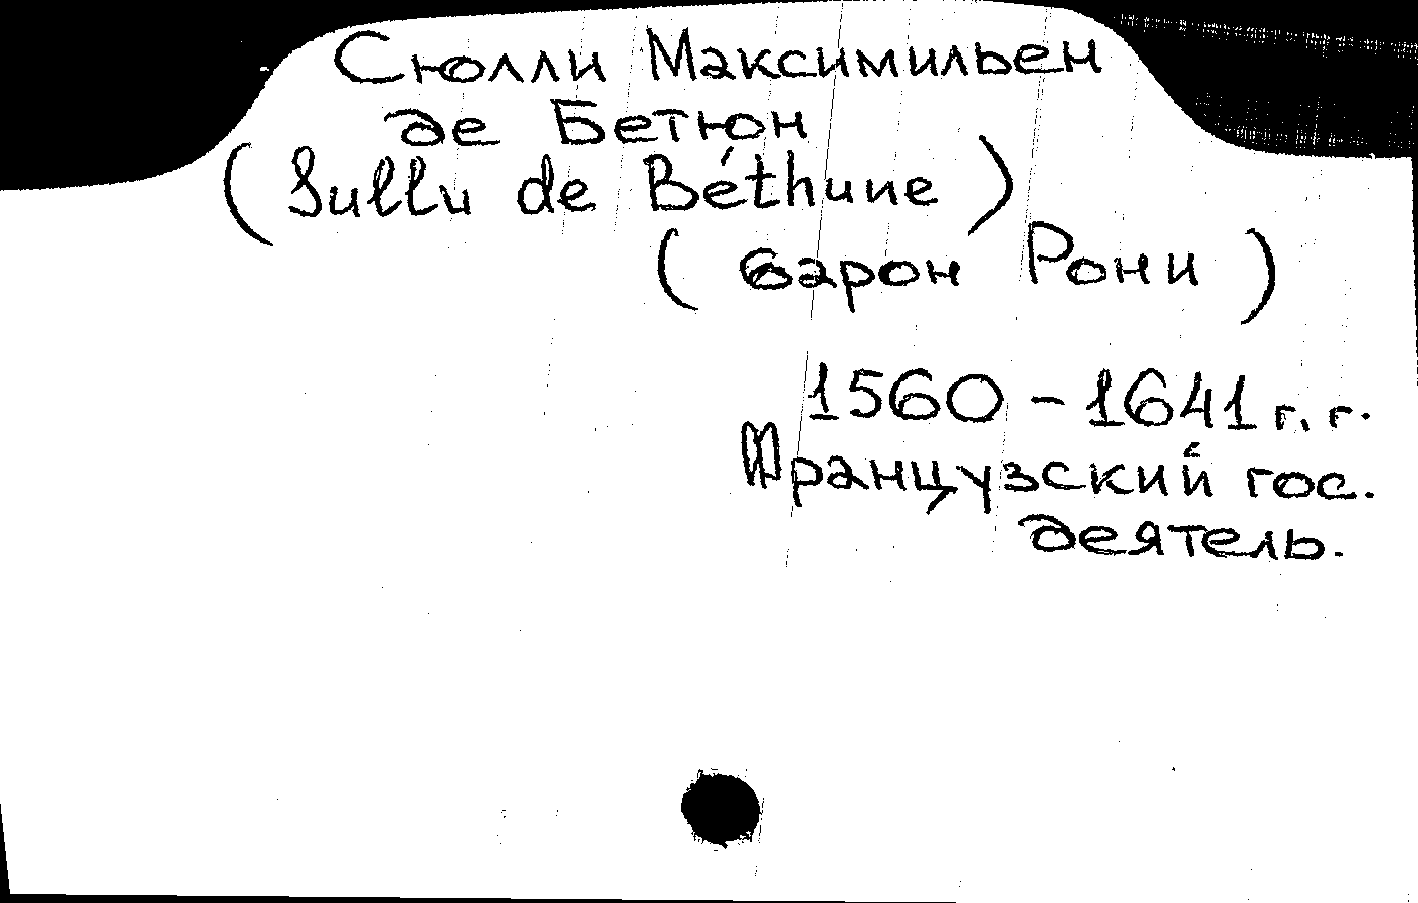 Сюлли Максимильен
де Бетюн
(Sullu de Béthune)
(барон Рони)
1560 - 1641 г.г.
Французский гос.
деятель.